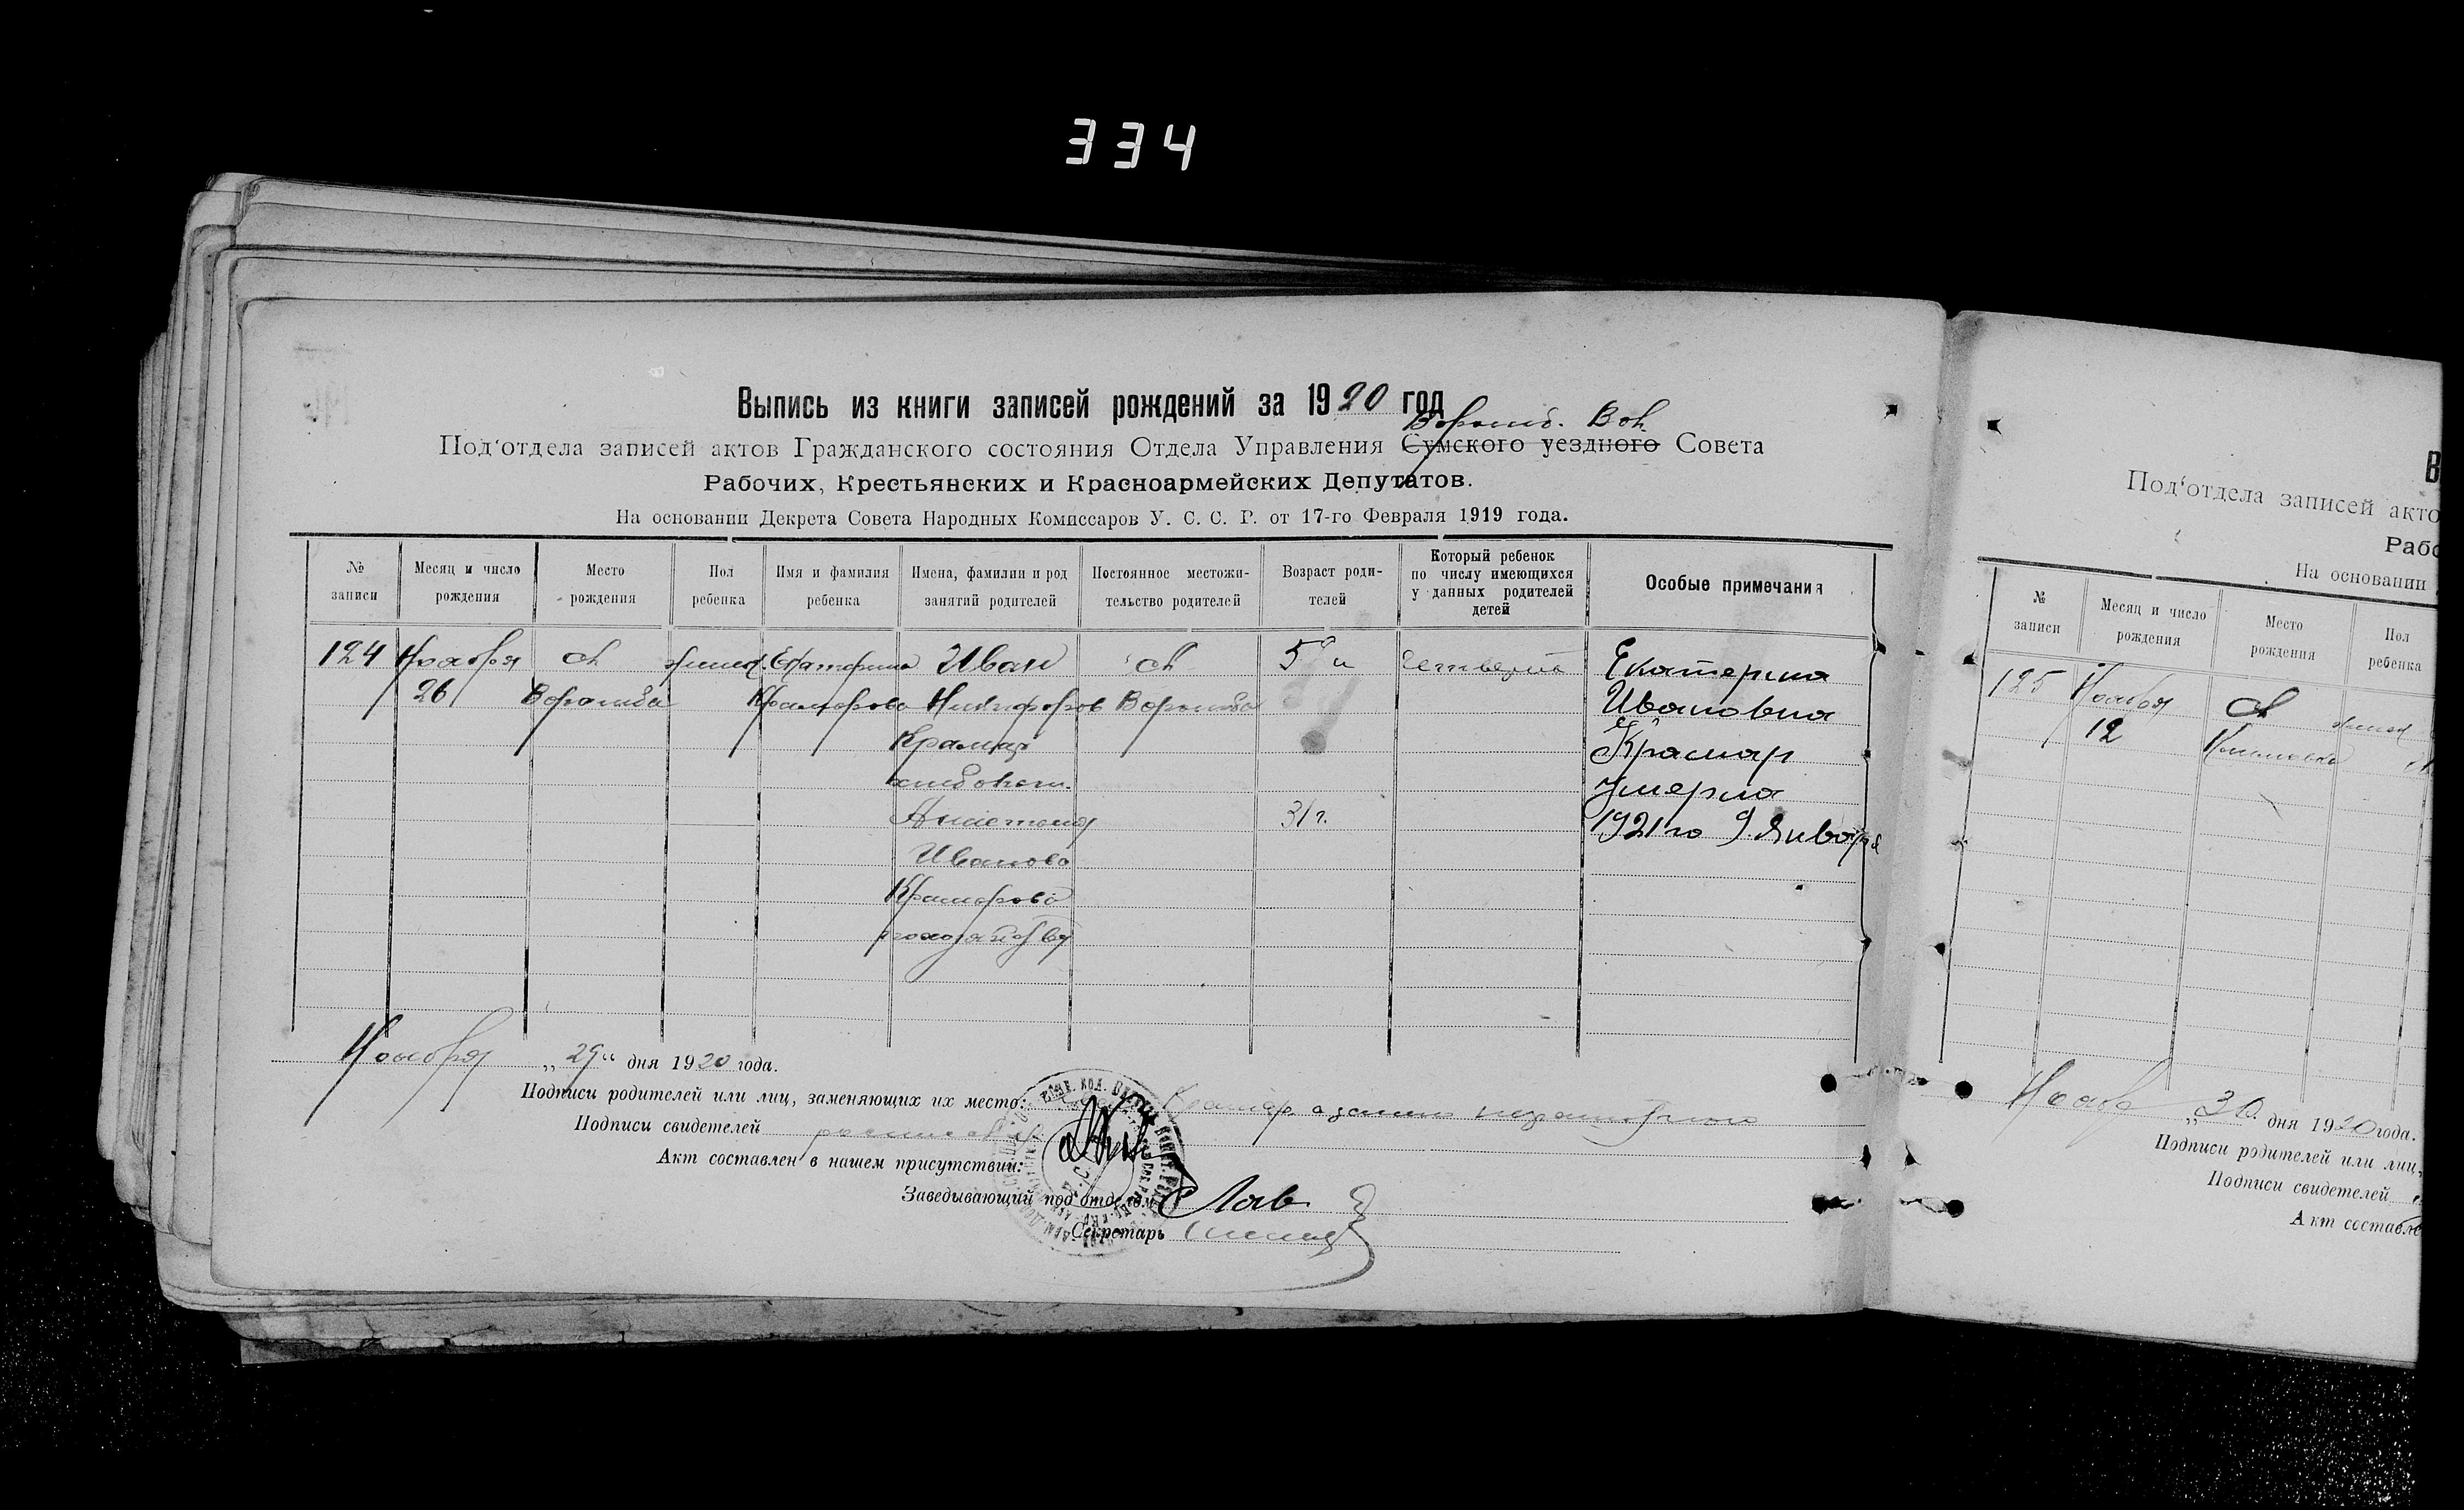 334
Выпись из книги записей рождений за 1920 год
Ворожб. Вол.
Под‘отдела записей актов Гражданского состояния Отдела Управления Сумского уездного Совета
Рабочих, Крестьянских и Красноармейских Депутатов.
На основании Декрета Совета Народных Комиссаров У. С. С. Р. от 17-го Февраля 1919 года.
№ записи
Месяц и число рождения
Место рождения
Пол ребенка
Имя и фамилия ребенка
Имена, фамилии и род занятий родителей
Постоянное местожительство родителей
Возраст родителей
Который ребенок по числу имеющихся у данных родителей детей
Особые примечания
124 Ноября сл. женск. Екатерина Иван сл. Екатерина
26 Ворожба Крамарова Никифоров Ворожба Ивановна
Крамар Крамар
хлебопаш. умерла
Анастасия 31 г. 1921 го 9 Января
Иванова
Крамарова
Ноября „29“ дня 1920 года.
Подписи родителей или лиц, заменяющих их место: Крамар а за него неграмотного
Подписи свидетелей
Акт составлен в нашем присутствии:
Заведывающий под‘отделом
Секретарь
В
Под‘отдела записей акто
Рабо
На основании
№ записи
Месяц и число рождения
Место рождения
Пол ребенка
125 Ноября сл. женск
12
Нояб „30. дня 1920 года.
Подписи родителей или лиц,
Подписи свидетелей
Акт составле